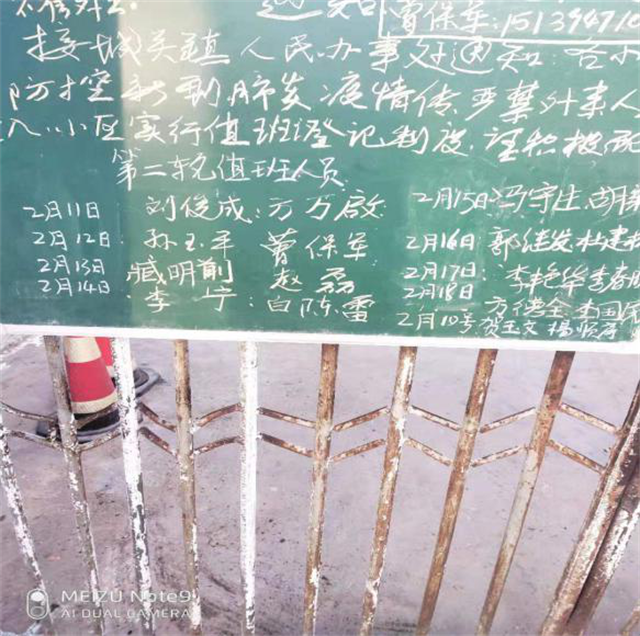 通知
曹保军:151394710
接城关镇人民办事处通知:各小
防控新型肺炎疫情传严禁外来人
入小区实行值班登记制度.望积极配
第二轮值班人员
2月11日 刘俊成:方万啟 2月15日:冯宇生.胡
2月12日 孙玉平 曹保军 2月16日 郭继发杜建
2月13日 臧明前 赵磊 2月17日:李艳华李
2月14日 李宁:白陈雷 2月18日 方供全李国
2月10号 贺玉文 杨顺
MEIZU Note9
AI DUAL CAMERA